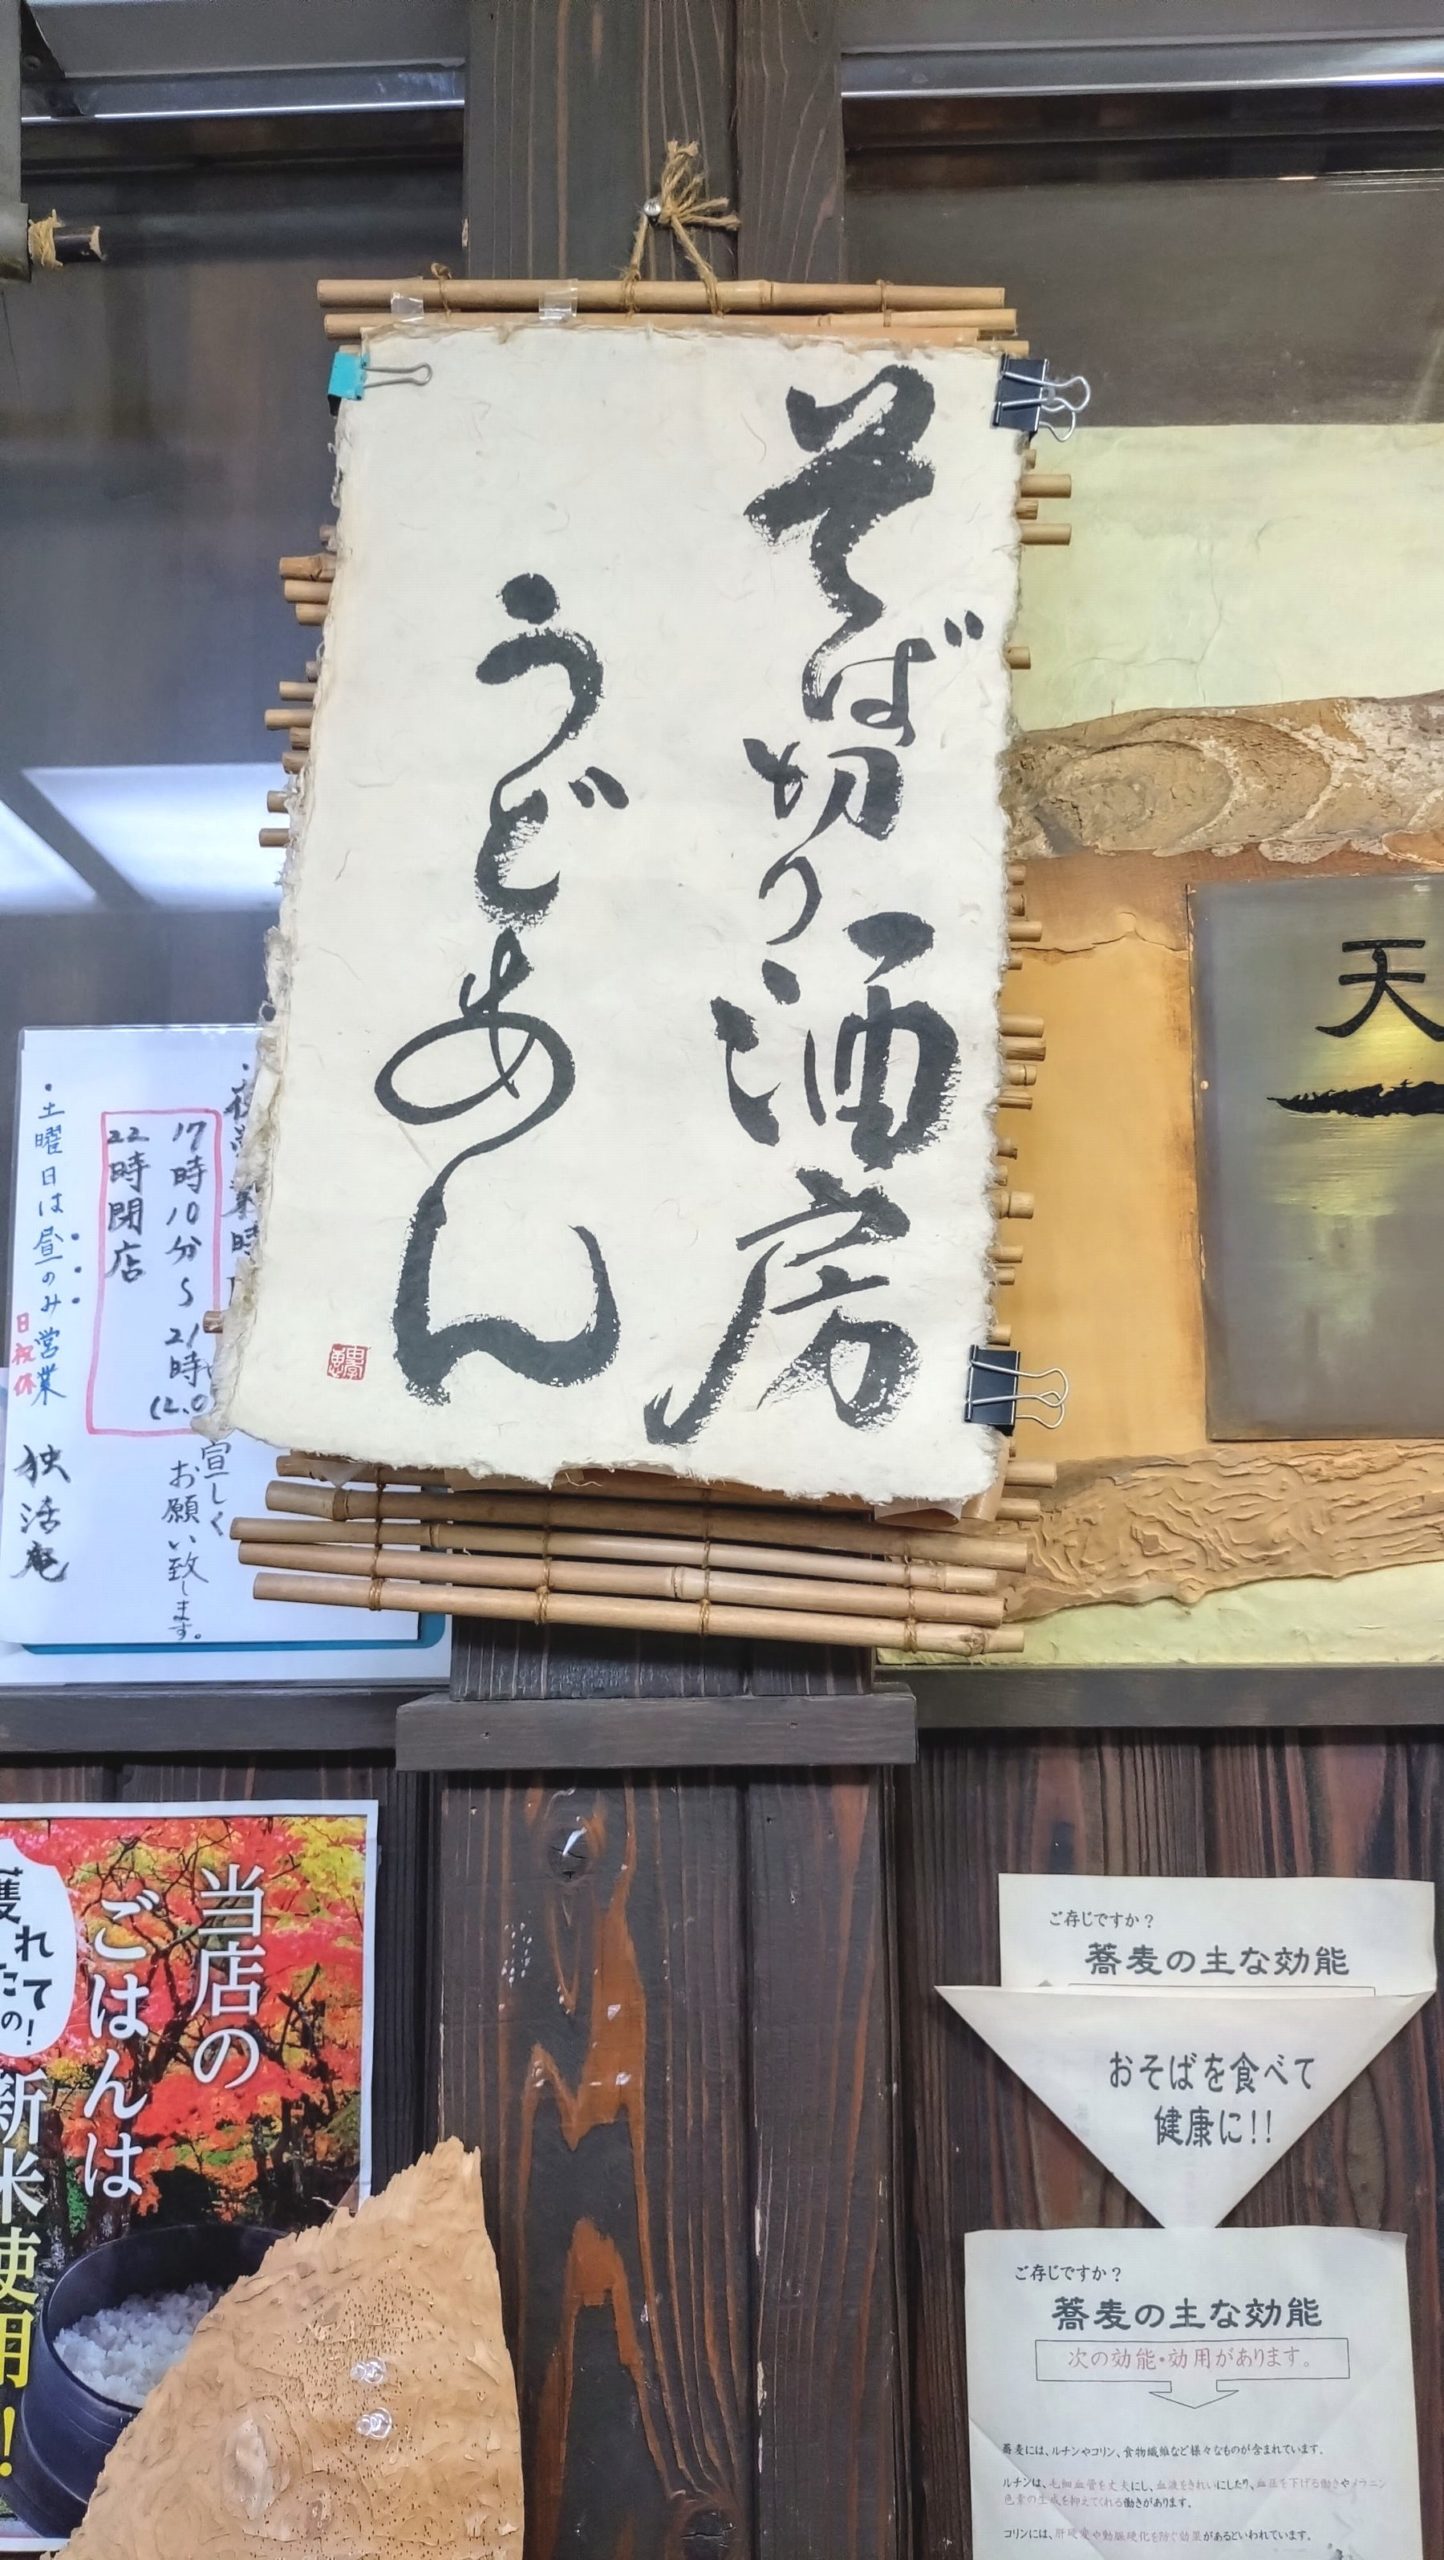 そば切り酒房
うどあん
天
17時10分〜21時
22時閉店
宜しく
お願い致します。
・土曜日は昼のみ営業
日祝休
独活庵
当店の
ごはんは
新米使用!
ご存じですか?
蕎麦の主な効能
おそばを食べて
健康に!!
ご存じですか?
蕎麦の主な効能
次の効能・効用があります。
蕎麦には、ルチンやコリン、食物繊維など様々なものが含まれています。
ルチンは、毛細血管を丈夫にし、血液をきれいにしたり、血圧を下げる働きやメラニン
色素の生成を抑えてくれる働きがあります。
コリンには、肝硬変や動脈硬化を防ぐ効果があるといわれています。